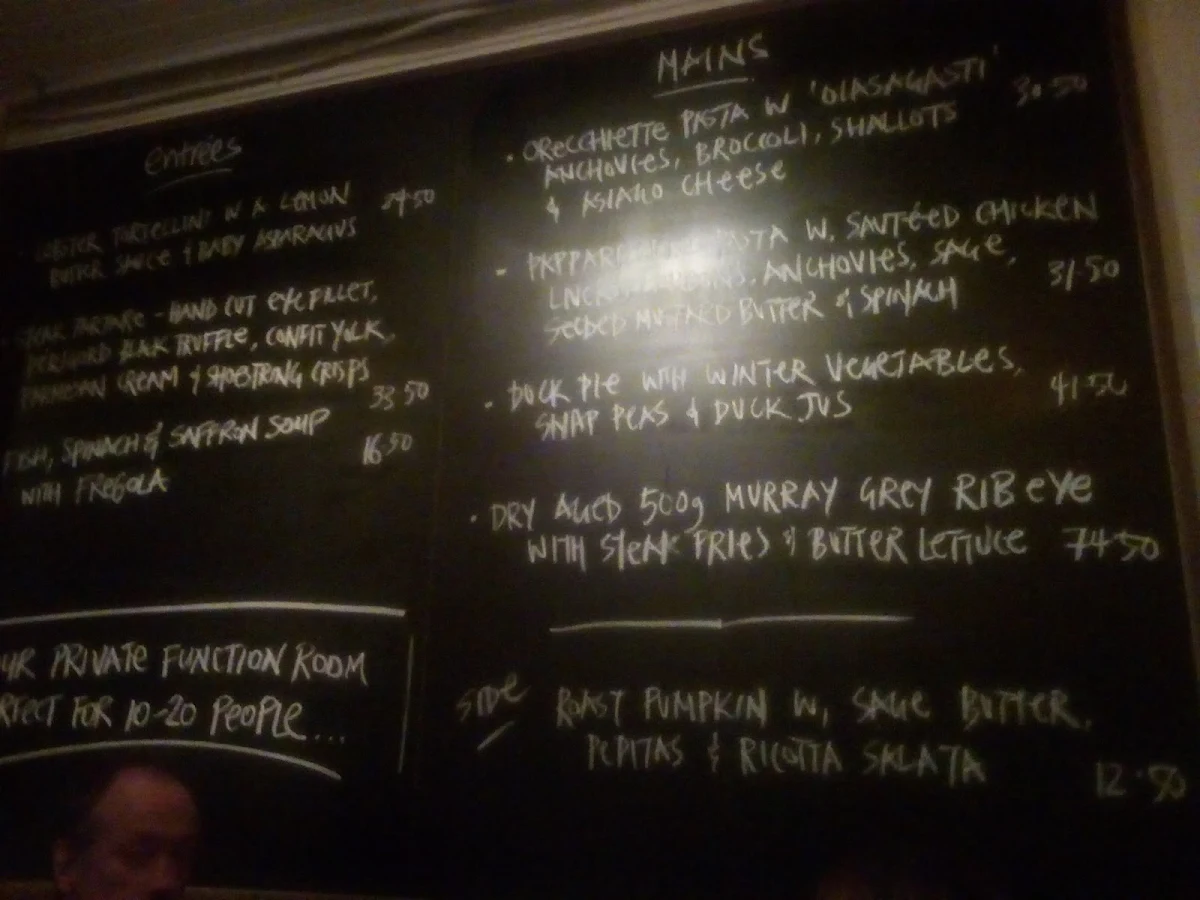 entrées
LOBSTER TORTELLINI W A LEMON 29.50
BUTTER SAUCE & BABY ASPARAGUS
TARTARE - HAND CUT EYE FILLET,
TRUFFLE, CONFIT YOLK,
CREAM & SHOESTRING CRISPS
33.50
FISH, SPINACH & SAFFRON SOUP
16.50
WITH FREGOLA
UR PRIVATE FUNCTION ROOM
RFECT FOR 10-20 PEOPLE...
MAINS
• ORECCHIETTE PASTA W 'OLASAGASTI' 30.50
ANCHOVIES, BROCCOLI, SHALLOTS
& ASIAGO CHEESE
- PAPPAR STA W. SAUTÉED CHICKEN
ANCHOVIES, SAGE, 31.50
SEEDED MUSTARD BUTTER & SPINACH
• DUCK PIE WITH WINTER VEGETABLES, 41.50
SNAP PEAS & DUCK JUS
• DRY AGED 500g MURRAY GREY RIB EYE
WITH STEAK FRIES & BUTTER LETTUCE 74.50
SIDE ROAST PUMPKIN W, SAGE BUTTER,
PEPITAS & RICOTTA SALATA
12.50